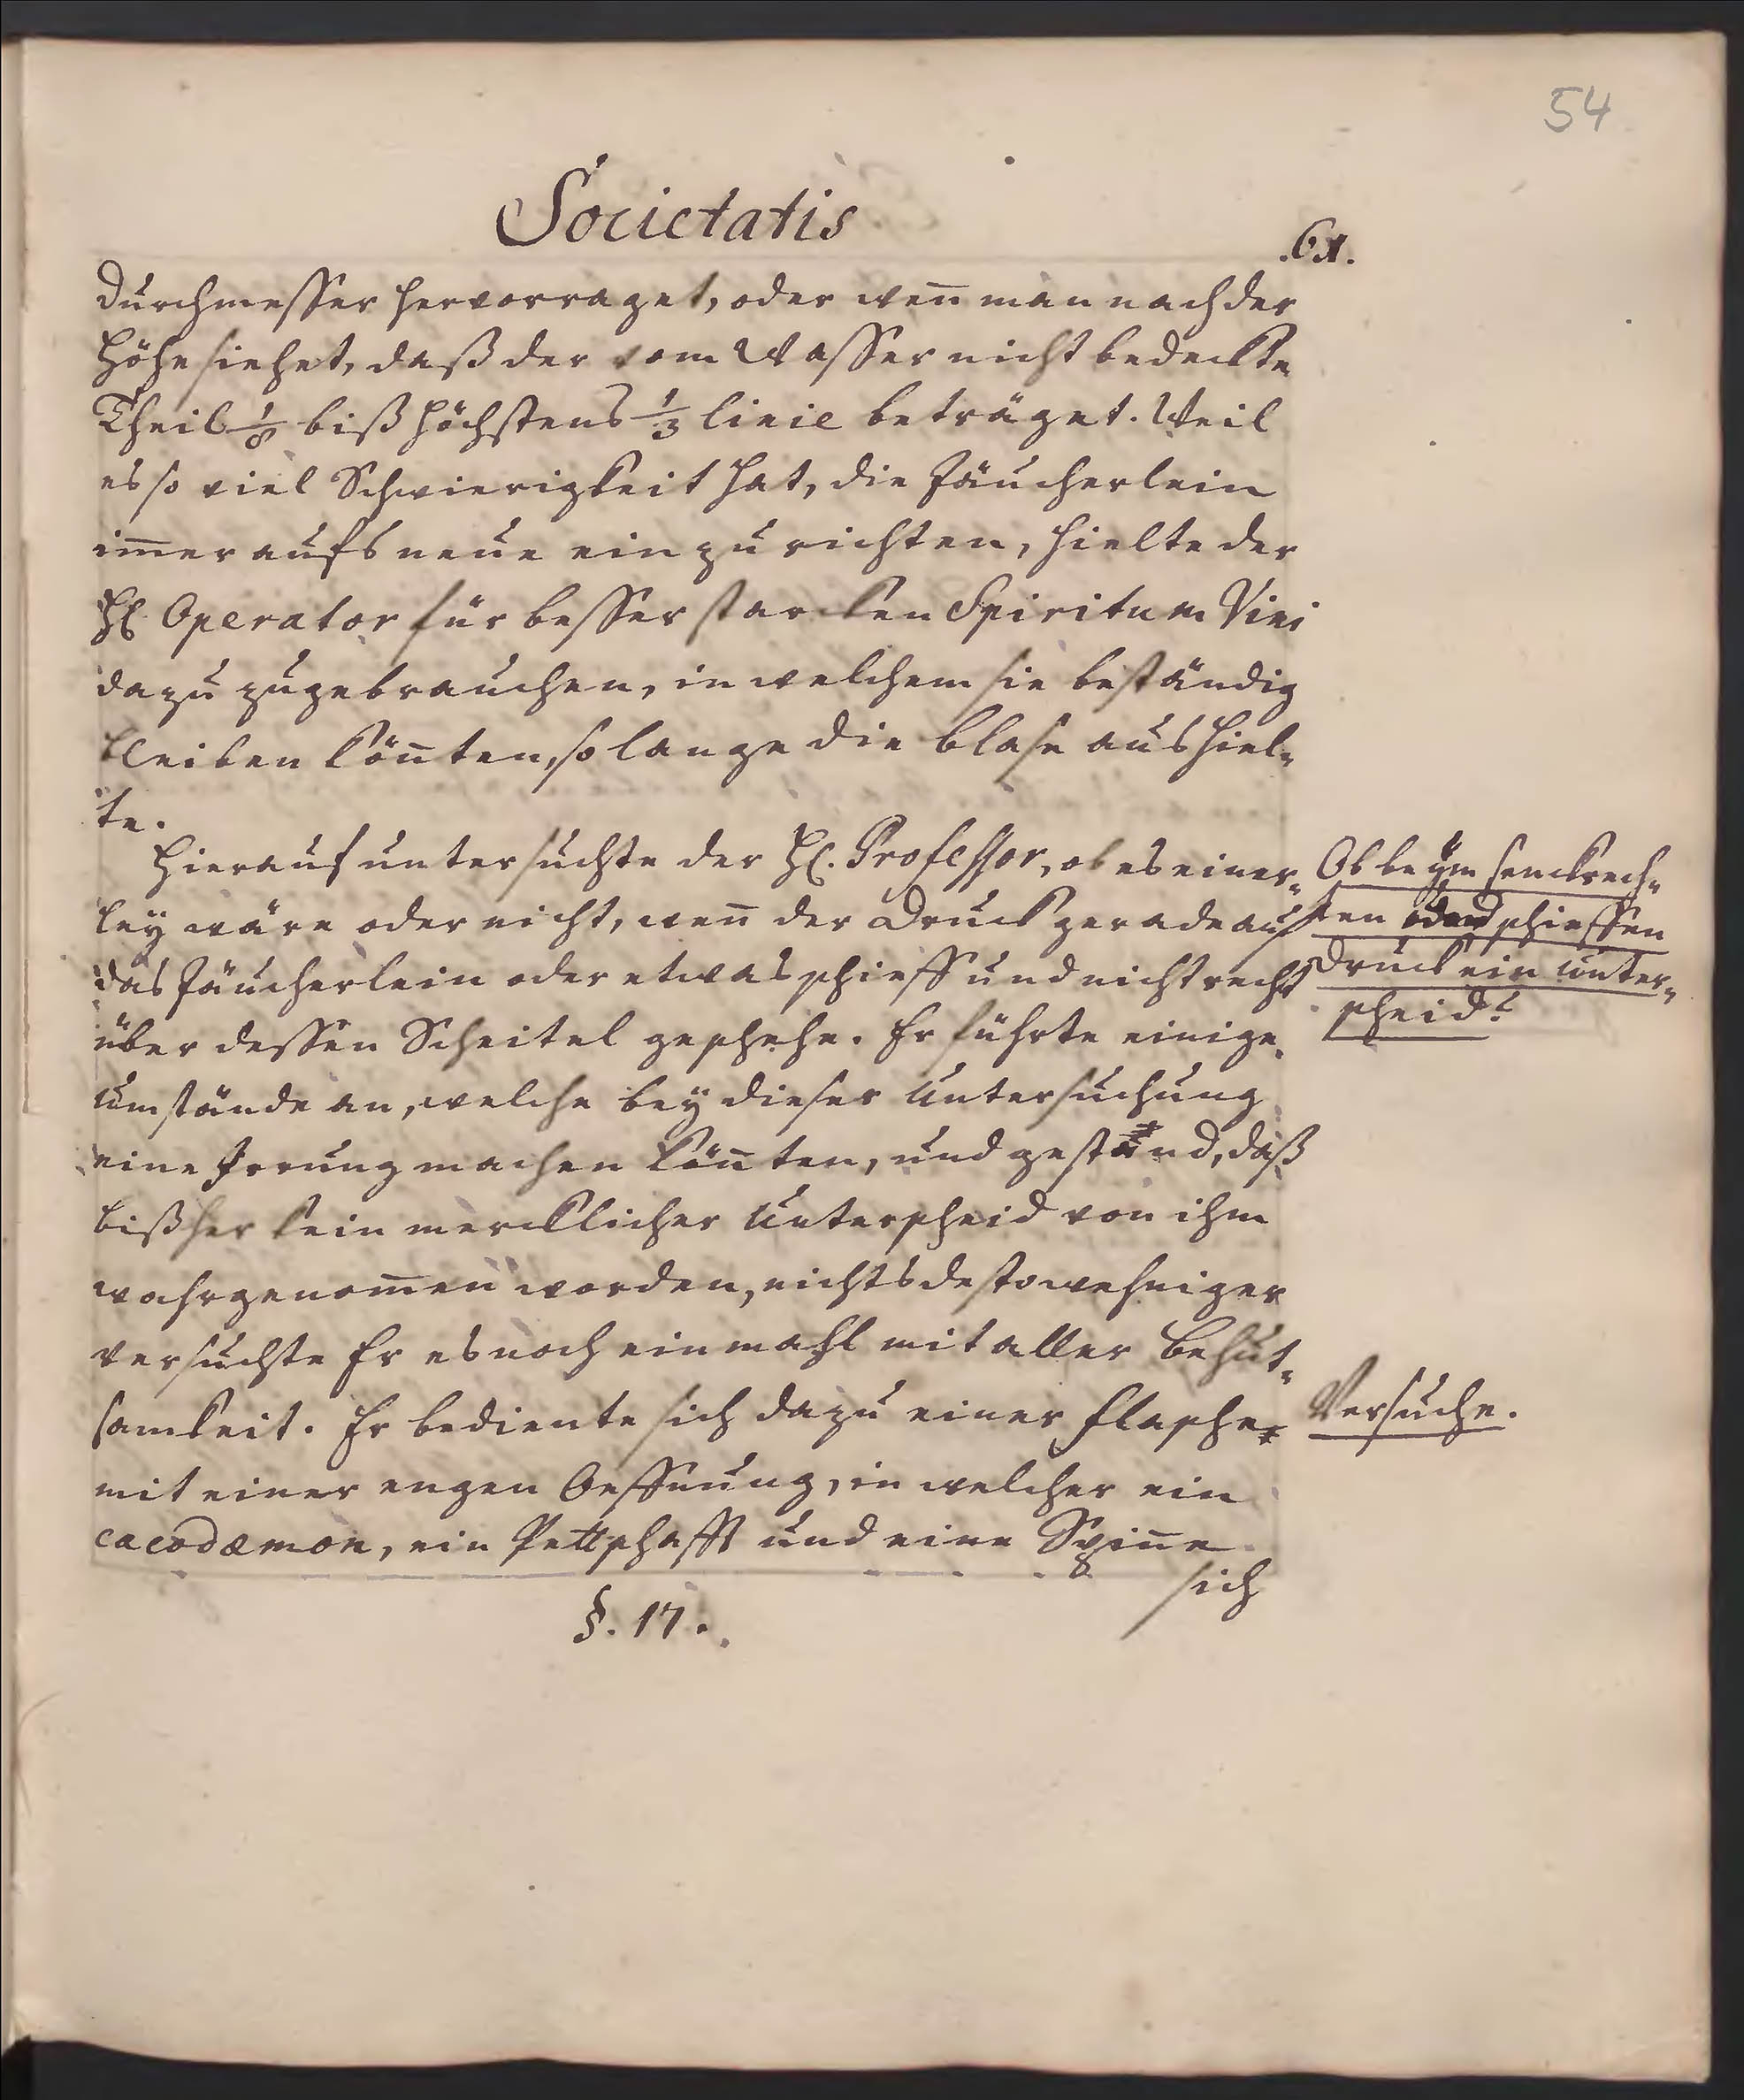 54
Societatis
.61.
Durchmesser hervorraget, oder weñ man nach der
Höhe siehet, daß der vom Wasser nicht bedeckte
Theil 1/8 biß höchstens 1/3 linie beträget. Weil
es so viel Schwierigkeit hat, die Täucherlein
im̃er aufs neue einzurichten, hielte der
H. Operator für besser starcken Spiritum Vini
dazu zugebrauchen, in welchem sie beständig
bleiben köñten, so lange die Blase aushiel-
te.
Hierauf untersuchte der H. Professor, ob es einer-
ley wäre oder nicht, weñ der Druck gerade auf
das Täucherlein oder etwas schieff und nicht recht
über dessen Scheitel geschehe. Er führte einige
Umstände an, welche bey dieser Untersuchung
eine Irrung machen köñten, und gestund, daß
bißher kein mercklicher Unterscheid von ihm
wahrgenom̃en worden, nichts destoweniger
versuchte Er es noch einmahl mit aller Behut-
samkeit. Er bediente sich dazu einer Flasche
mit einer engen Oeffnung, in welcher ein
cacodæmon, ein Pettschafft und eine Spiñe
sich
§. 17.
Ob beym senckrech-
ten oder schieffen
Druck ein Unter-
scheid?
Versuche.